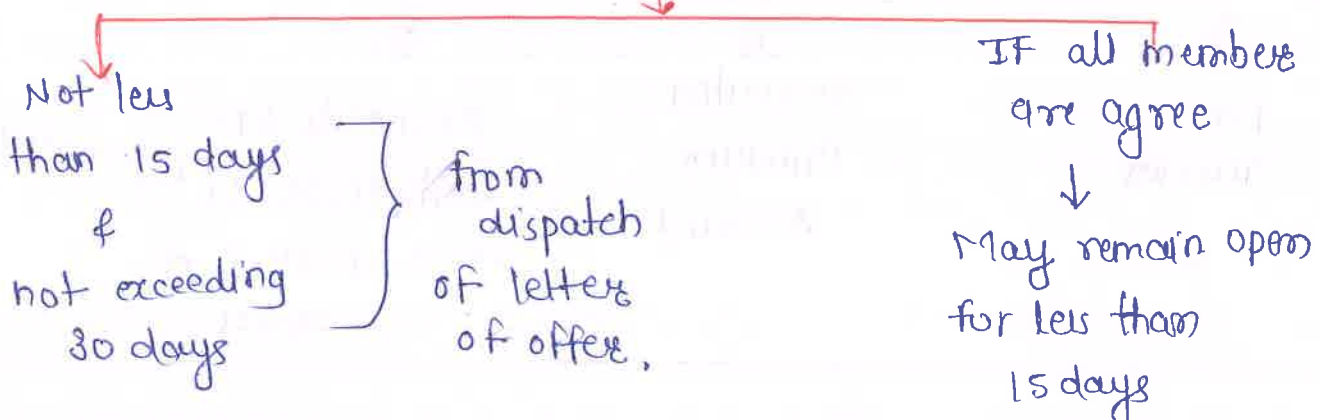 Not less
than 15 days
&
not exceeding
30 days
from
dispatch
of letter
of offer.
IF all members
are agree
May remain open
for less than
15 days